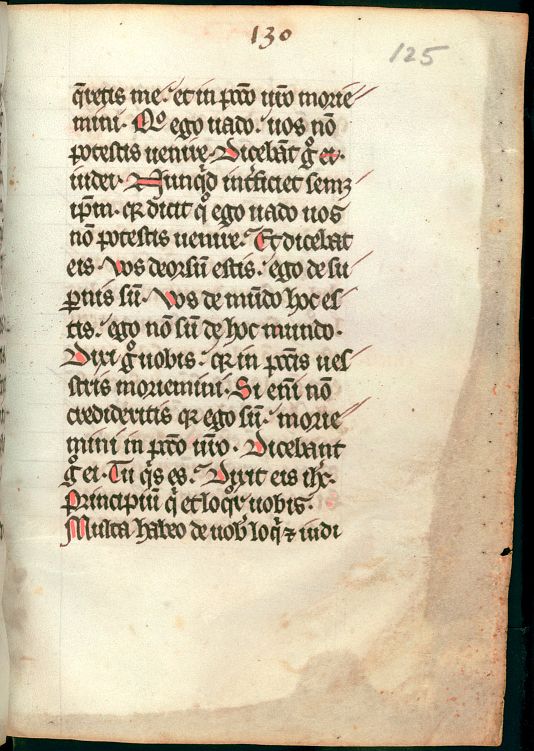 130
125
q̄retis me. et in pcc̄o ur̄o morie
mini. Q°o ego uado. uos nō
potestis uenire. Dicebāt g̊ ei.
iudei. Nunq̄d int̄ficiet semꝫ
ip̄m. qꝛ dicit q̊ ego uado uos
nō potestis uenire. Et dicebat
eis. Vos deorsū estis. ego de su
ꝑnis sū. Vos de mūdo hoc es
tis. ego nō sū de hoc mundo.
Dixi g̊ uobis. qꝛ in pcc̄is ues
stris moriemini. Si enī nō
credideritis qꝛ ego sū. morie
mini in pcc̄o ur̄o. Dicebant
g̊ ei. Tu q̇s es. Dixit eis ihc̄.
Principiū q̇ et loq̊r uobis.
Multa habeo de uob̄ loq̇ ⁊ iudi